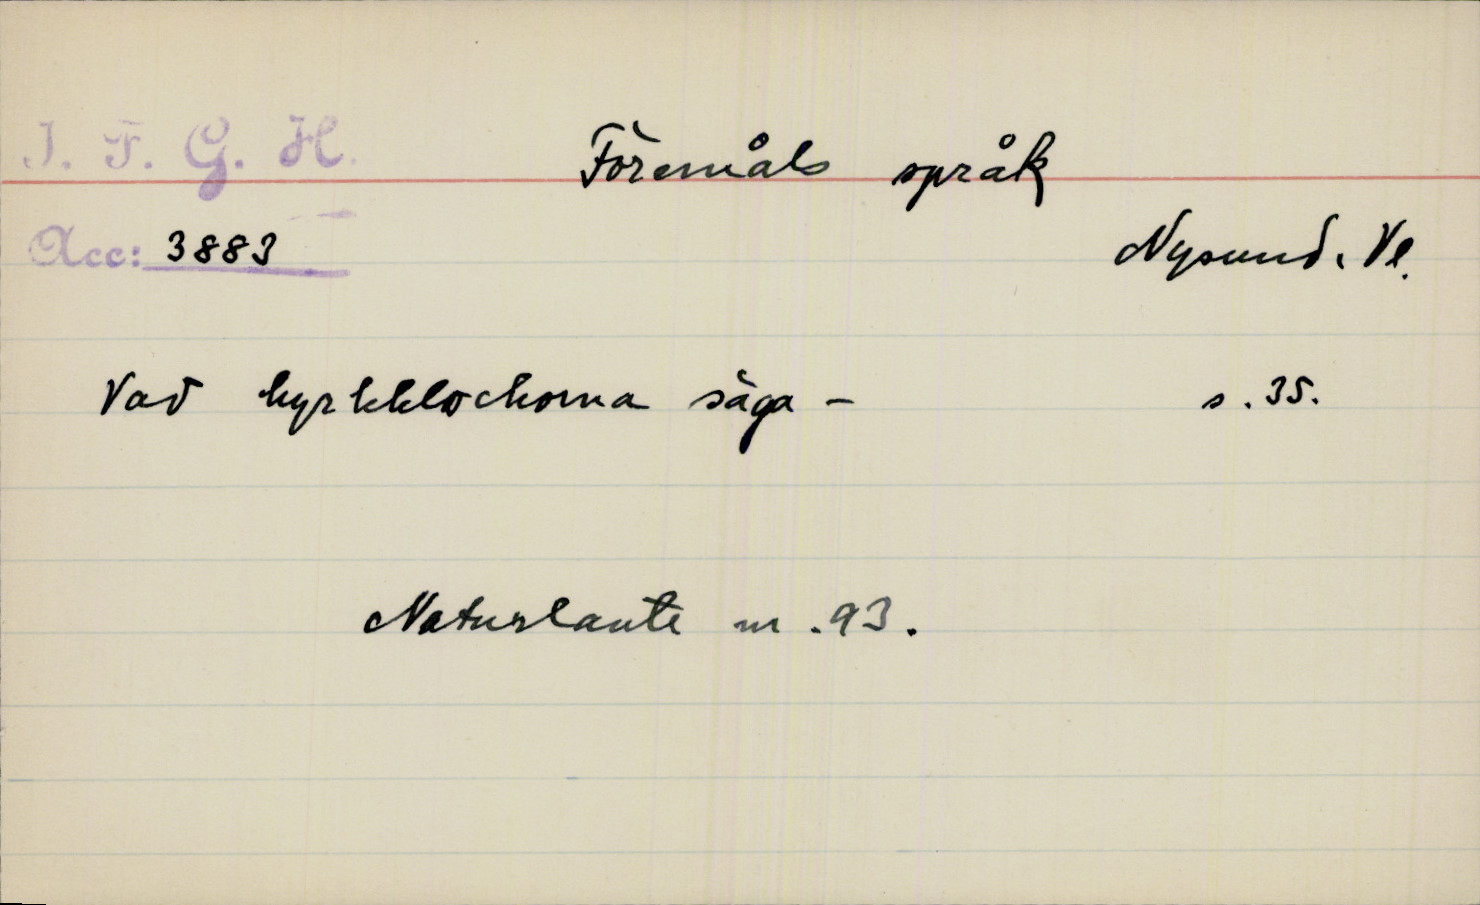 I. F. G. H.
Föremåls språk
Acc: 3883
Nysund. Vl.
Vad kyrkklockorna säga - s. 35.
Naturlaute nr. 93.